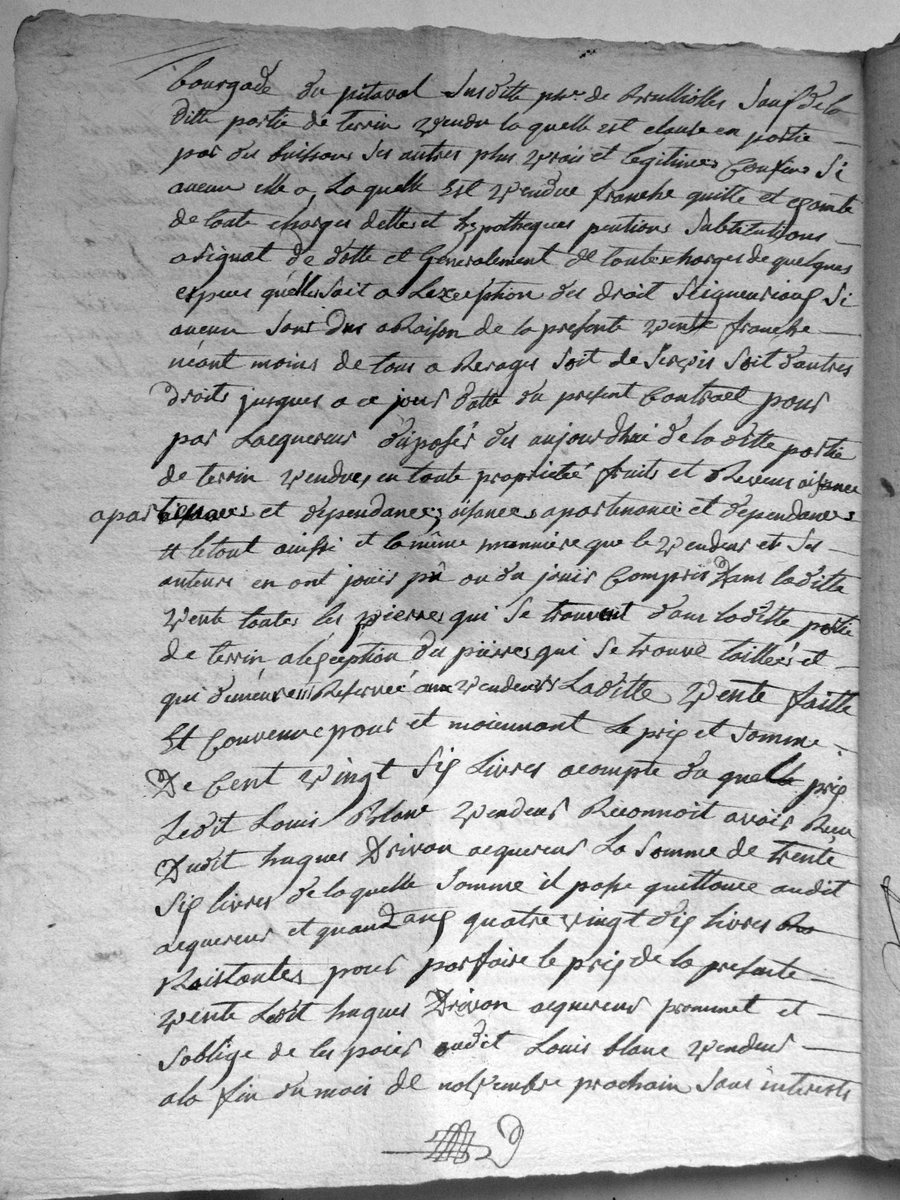 bourgade du pitaval susditte phe de Brulliolles sauf de la
ditte portie de terrin vendu la quelle est clause en portie
par du buissons ses autres plus vrais et legitimes Confins si
aucun elle a laquelle Est vendue franche quitte et exomte
de toute charges dettes et hypotheques pentions substitutions
asignat de dotte et Generalement de toutes charges de quelques
espeses quelle soit a Lexception des droit seigneuriaux si
aucun sont dus a Raison de la presente vente franche
néant moins de tous a Rerages soit de servis soit d'autres
droits jusques a ce jour datte du present Contract pour
par Lacquereur disposer des aujourdhui de la ditte portie
de terrin vendue, en toute proprieté fruits et Revenu aisance
apartenances et dependances, aisances apartenance et dependances
# le tout ainssi et la même manniere que le vendeur et ses
auteurs en ont jouis pû ou du jouir Compris Dans laditte
vente toutes les pierres qui se trouvent dans laditte portie
de terrin a léxception du pierres qui se trouve taillées et
qui demeurent Reservée aux vendeurs Laditte vente faitte
Et Convenue pour et moiennant Le prix et somme
De Cent vingt six Livres acompte du quelle prix
Ledit Louis Blanc vendeur Reconnoit avoir Reçu
Dudit hugues Drivon acquereur La somme de trente
six livres de laquelle somme il passe quittance audit
acquereur et quand aux quatre vingt dix livres
Raistantes pour parfaire le prix de la presente
vente Ledit hugues Drivon acquereur prommet et
soblige de les paier audit Louis blanc vendeur
a la fin du mois de novembre prochain sans interests